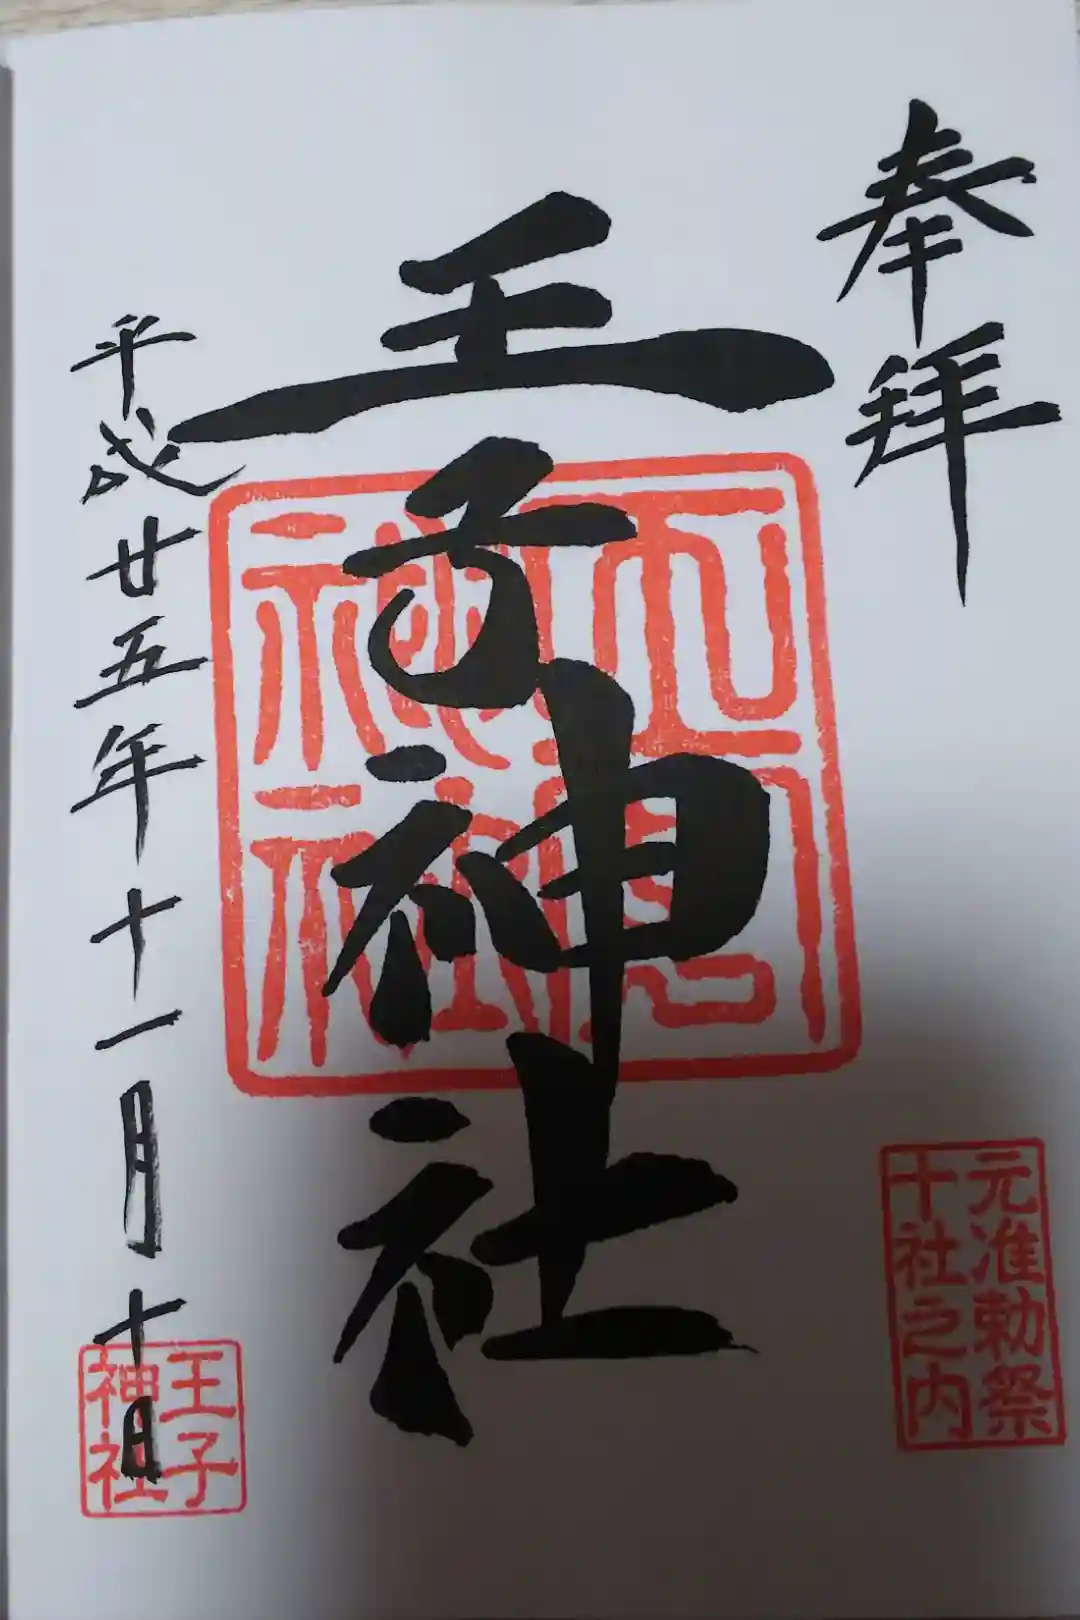 奉拝
元准勅祭
十社之内
王子神社
平成廿五年十一月十日
王子
神社